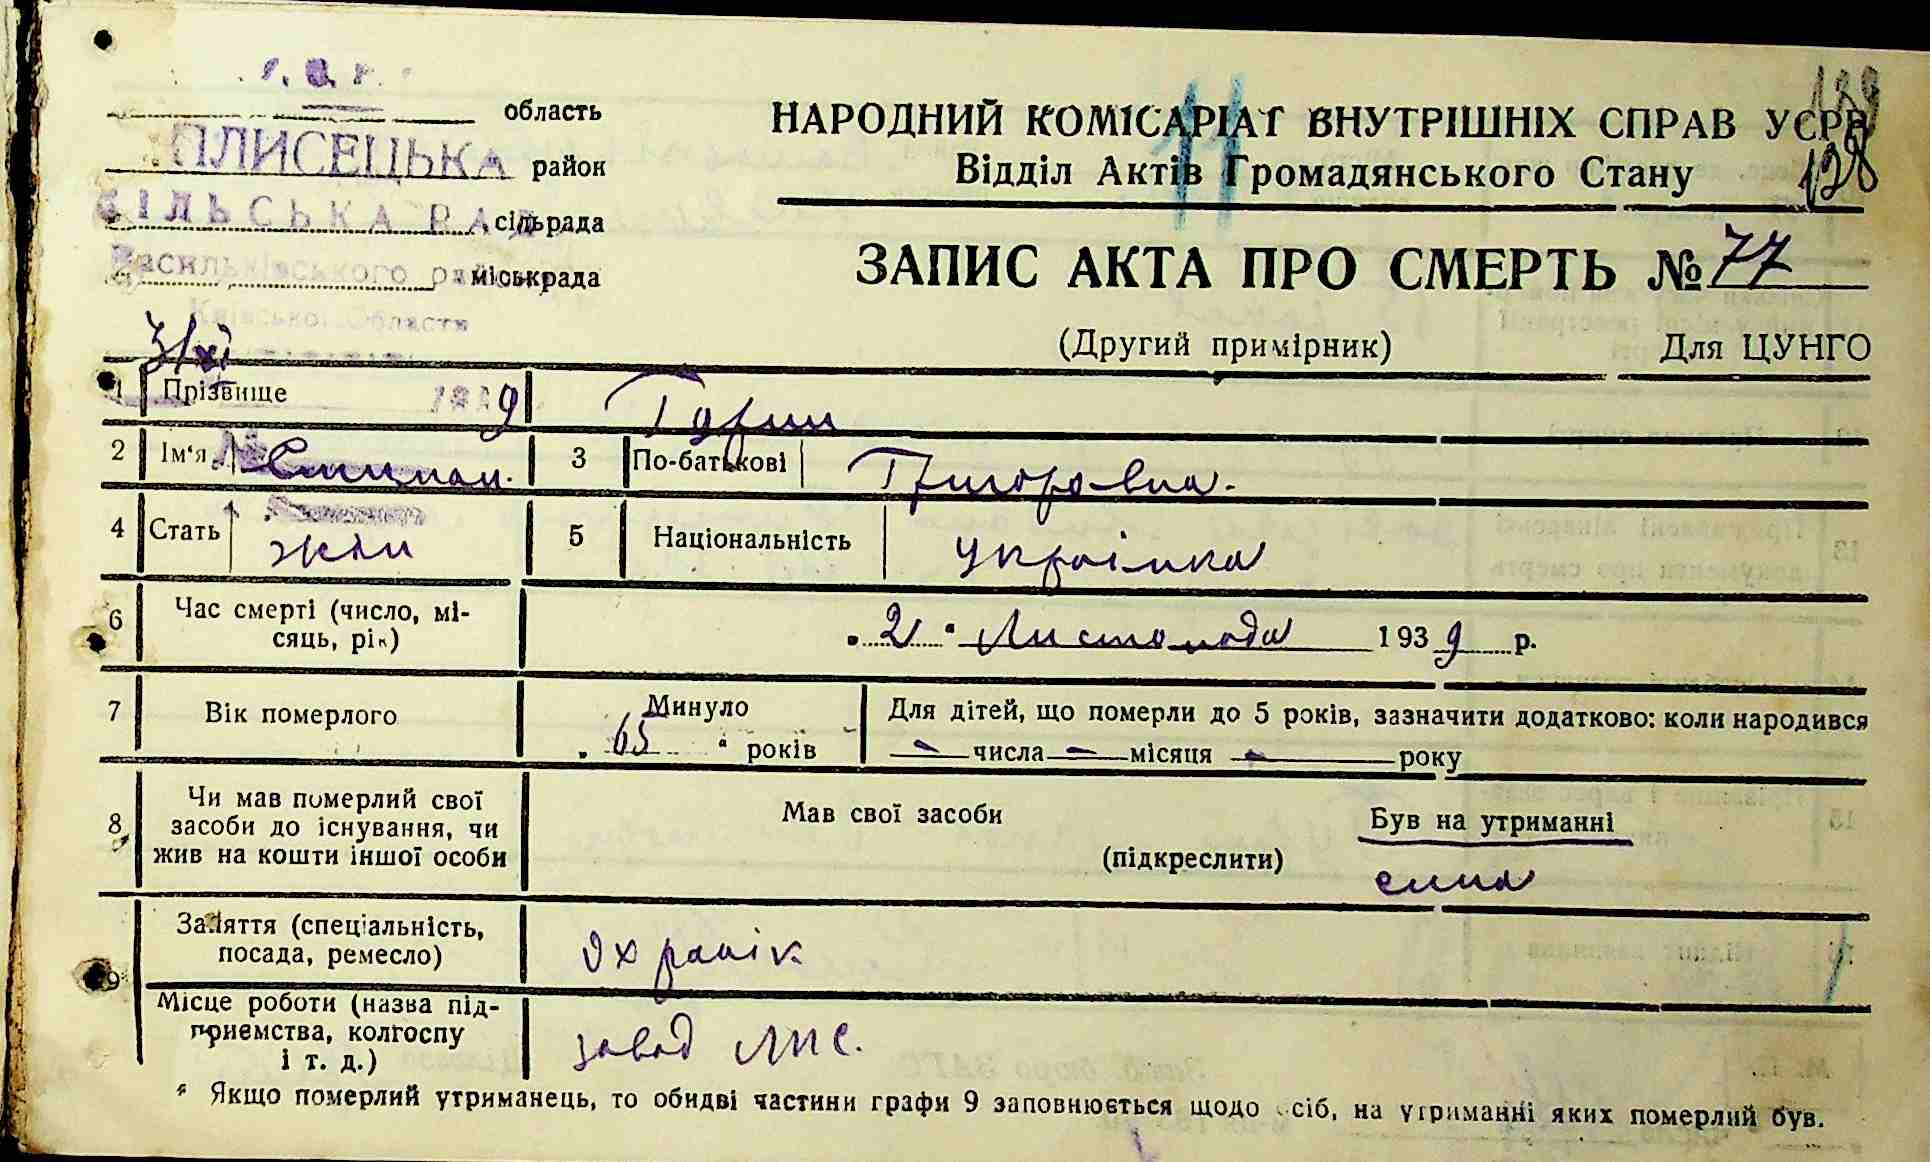 область
ПЛИСЕЦЬКА район
СІЛЬСЬКА РАДА сільрада
Васильківського району міськрада
Київської Області
3/XI
1939
НАРОДНИЙ КОМІСАРІАТ ВНУТРІШНІХ СПРАВ УСРР
11
Відділ Актів Громадянського Стану
128
ЗАПИС АКТА ПРО СМЕРТЬ № 77
(Другий примірник) Для ЦУНГО
1 Прізвище
2 Ім'я 3 По-батькові Григоровна.
4 Стать жін 5 Національність українка
6 Час смерті (число, мі-
сяць, рік)
„2" Листопада 1939 р.
7 Вік померлого
Минуло
„65" років
Для дітей, що померли до 5 років, зазначити додатково: коли народився
— числа — місяця — року
8 Чи мав померлий свої
засоби до існування, чи
жив на кошти іншої особи
Мав свої засоби Був на утриманні
(підкреслити) сина
9 Заняття (спеціальність,
посада, ремесло)
Охранік
Місце роботи (назва під-
приємства, колгоспу
і т. д.)
завод
* Якщо померлий утриманець, то обидві частини графи 9 заповнюється щодо осіб, на утриманні яких померлий був.